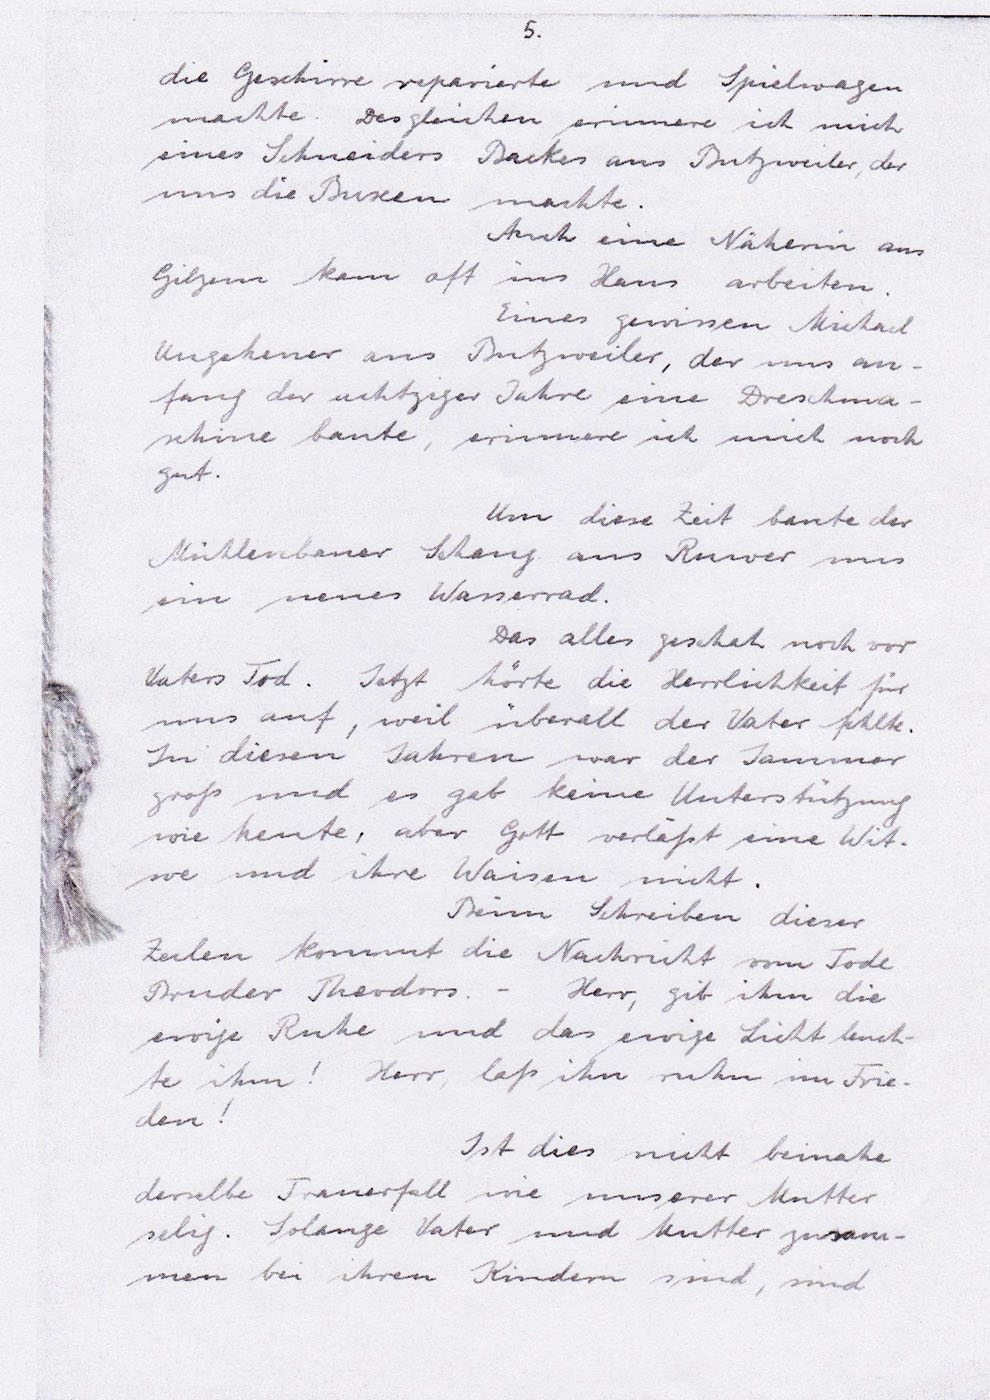 5.
die Geschirre reparierte und Spielwagen
machte. Desgleichen erinnere ich mich
eines Schneiders Backes aus Butzweiler, der
uns die Buxen machte.
Auch eine Näherin aus
Gilzem kam oft ins Haus arbeiten.
Eines gewissen Michael
Ungeheuer aus Butzweiler, der uns an-
fang der achtziger Jahre eine Dreschma-
schine baute, erinnere ich mich noch
gut.
Um diese Zeit baute der
Mühlenbauer Schang aus Ruwer uns
ein neues Wasserrad.
Das alles geschah noch vor
Vaters Tod. Jetzt hörte die Herrlichkeit für
uns auf, weil überall der Vater fehlte.
In diesen Jahren war der Jammer
groß und es gab keine Unterstützung
wie heute, aber Gott verläßt eine Wit-
we und ihre Waisen nicht.
Beim Schreiben dieser
Zeilen kommt die Nachricht vom Tode
Bruder Theodors. - Herr, gib ihm die
ewige Ruhe und das ewige Licht leuch-
te ihm! Herr, laß ihn ruhn im Frie-
den!
Ist dies nicht beinahe
derselbe Trauerfall wie unserer Mutter
selig. Solange Vater und Mutter zusam-
men bei ihren Kindern sind, sind